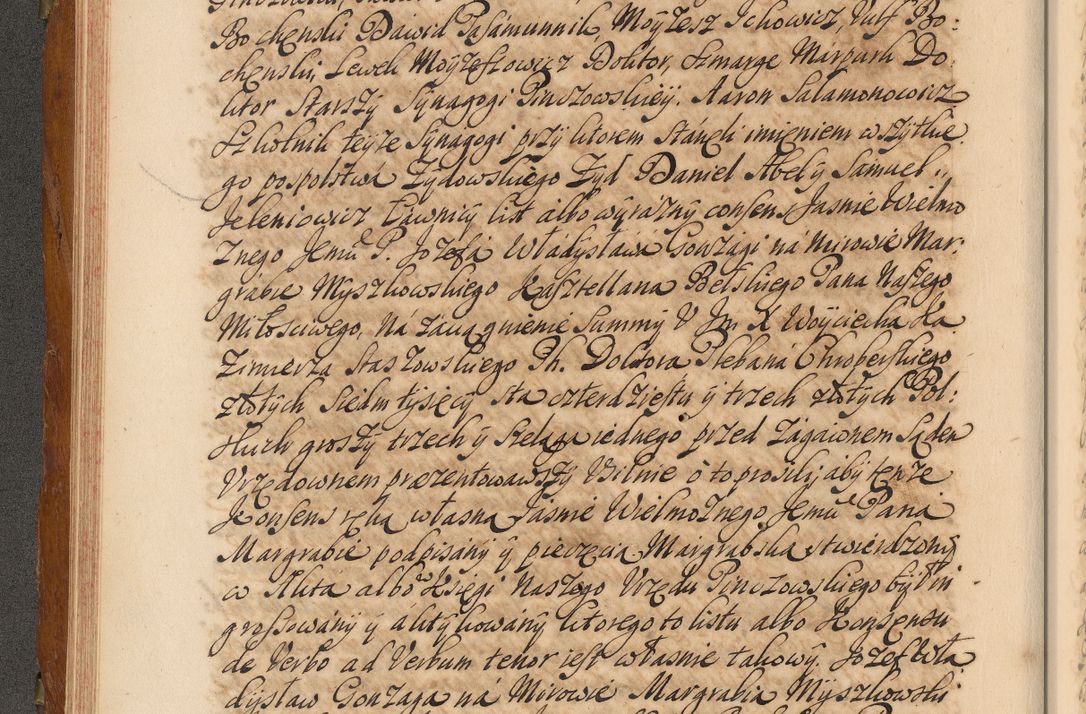 Bochenski Dawid Pasamunnik, Moyzesz Ichowicz, Wulf Bo:
chenski, Lewek Moyzeszowicz Doktor, Szmarge Mirpach Do:
ktor Starszy Synagogi Pinczowskiey. Aaron Salamonowicz
Szkolnik teyze Synagogi przy ktorem staneli imieniem wszytkie
go pospolstwa Zydowskiego Zyd Daniel Abel y Samuel
Jeleniowicz Ławnicy list albo wyrazny consens Jasnie Wielmo
znego Jemu P. Jozefa Władysława Gonzagi na Mirowie Mar:
grabie Myszkowskiego Kasztellana Bełskiego Pana Naszego
Miłosciwego, na zaciągnienie Summy U Jm X Woyciecha Ka
zimierza Staszowskiego Ph. Doktora Plebana Chroberskiego
złotych Siedm tysięcy sta czterdziestu y trzech złotych Pol:
skich groszy trzech y szeląga iednego przed Zagaionem Sądem
Urzędownem praezentowawszy Usilnie o to prosili aby tenze
Konsens ręką własną Jasnie Wielmoznego Jemu Pana
Margrabie podpisany y pieczęcią Margrabską stwierdzony
w Akta albo w Księgi Naszego Urzędu Pinczowskiego był in
grossowany y aktykowany ktorego to listu albo Konsensu
de Verbo ad Verbum tenor iest własnie takowy. Jozef Wła
dysław Gonzaga na Mirowie Margrabia Myszkowski